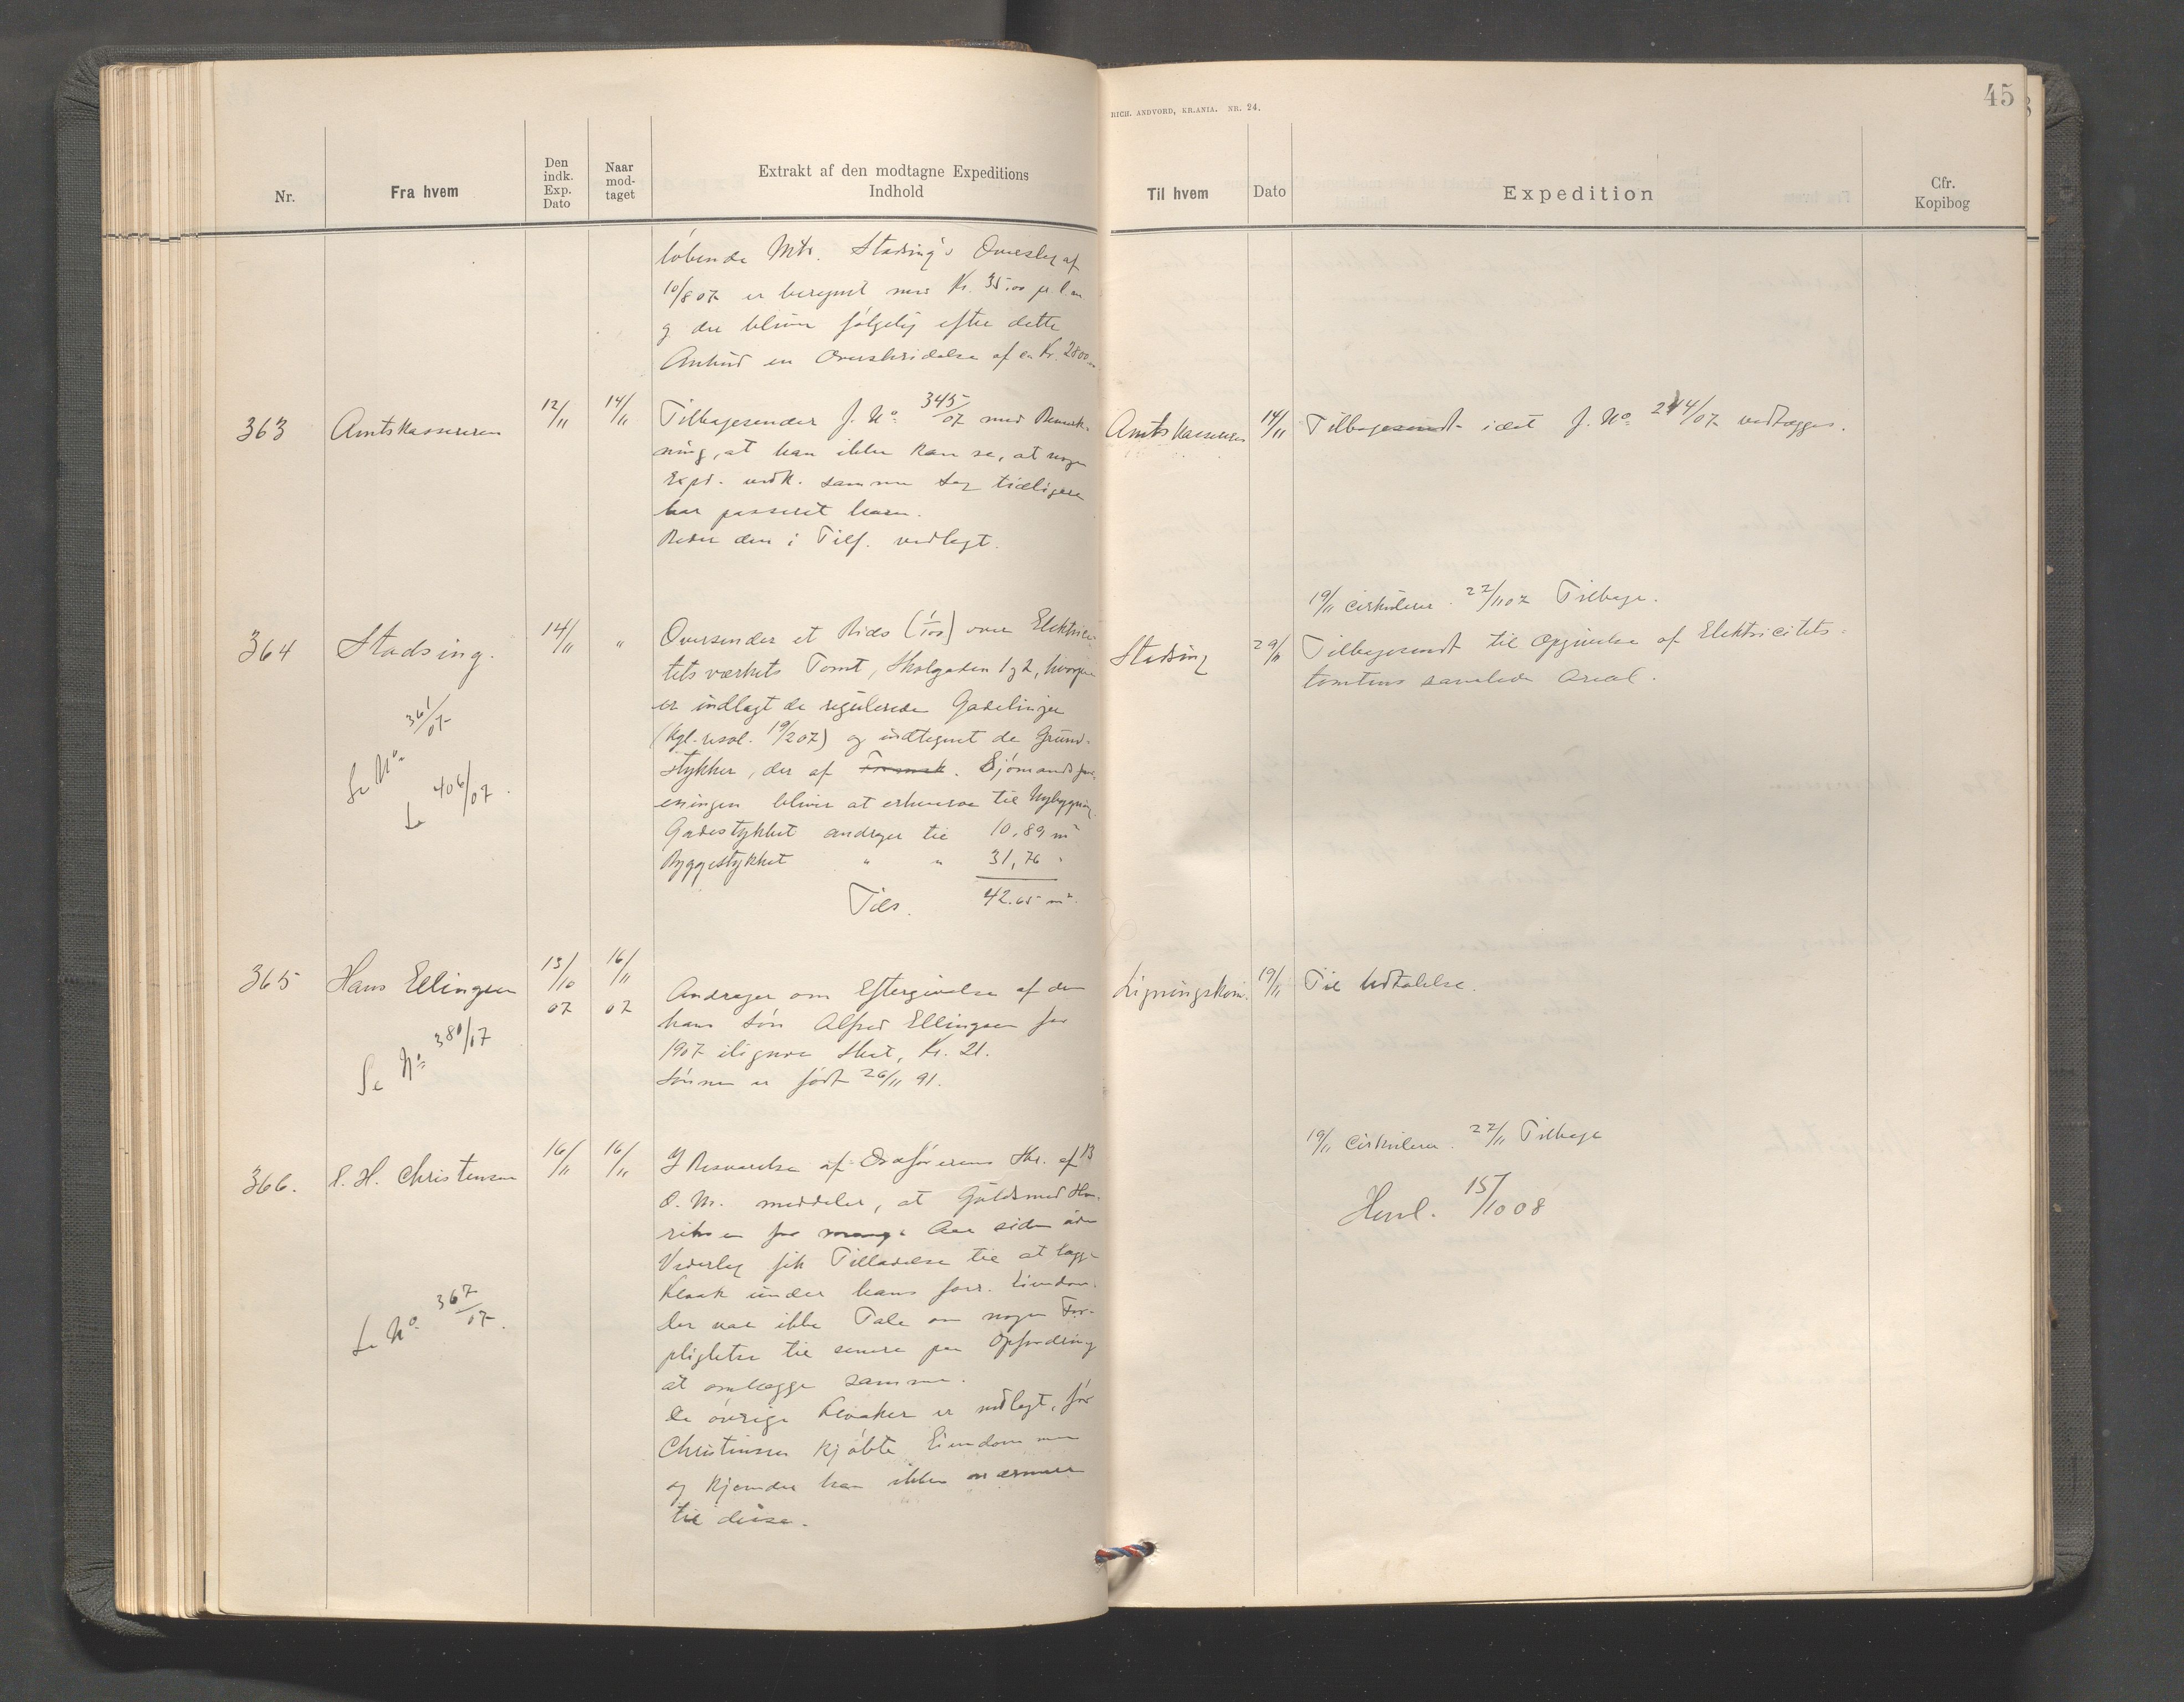 Nr.
Fra hvem
Den indk. Exp. Dato
Naar mod-taget
Extrakt af den modtagne Expeditions
Indhold
løbende Mtr. Stadsing's Overslag af
10/8 07 er beregnet med Kr. 35.00 pr. l.m
g der bliver følgelig efter dette
Anbud en Overskridelse af ca Kr. 2800
363 Amtskassereren 12/11 14/11 Tilbagesender J. No. 345/07 med Bemærk-
ning, at han ikke kan se, at nogen
Expd. vedk. samme Sag tidligere
har passeret ham.
Beder den i Tilf. vedlagt.
364 Stadsing. 14/11 " Oversender et Rids (1/100) over Elektrici-
tetsværkets Tomt, Skolgaden 1 g 2, hvorpaa
er indlagt de regulerede Gadelinjer
(Kgl. resol. 19/2 07) og indtegnet de Grund-
stykker, der af Sjømandsfor-
eningen bliver at erhverve til Nybygning.
Gadestykket andrager til 10,89 m²
Byggestykket " " 31,76 "
Tils. 42.65 m²
Se No. 361/07
Se 406/07.
365 Hans Ellingsen 13/10 07 16/11 07
Andrager om Eftergivelse af den
hans Søn Alfred Ellingsen for
1907 ilignede Skat, Kr. 21.
Sønnen er født 26/11 91.
Se No. 380/07
366. P. H. Christensen 16/11 16/11 I Besvarelse af Ordførerens Skr. af 13
d. M. meddeler, at Guldsmed Hen-
riksen for mange Aar siden uden
Vederlag fik Tilladelse til at lægge
Kloak under hans forr. Eiendom.
Der var ikke Tale om nogen For-
pligtelse til senere paa Opfordring
at omlægge samme.
De øvrige Kloaker er nedlagt, før
Christensen kjøbte Eiendommen
og kjender han ikke nærmere
til disse.
Se No. 367/07.
RICH. ANDVORD, KR.ANIA. NR. 24.
45
Til hvem
Dato
Expedition
Cfr.
Kopibog
Amtskassereren 14/11 Tilbagesendt idet J. No. 244/07 vedlægges.
19/11 Cirkulerer. 22/11 07 Tilbage.
Stadsing 29/11 Tilbagesendt til Opgivelse af Elektricitets-
tomtens samlede Areal.
Ligningskom. 19/11 Til Udtalelse.
19/11 Cirkulerer. 22/11 Tilbage
Henl. 15/10 08